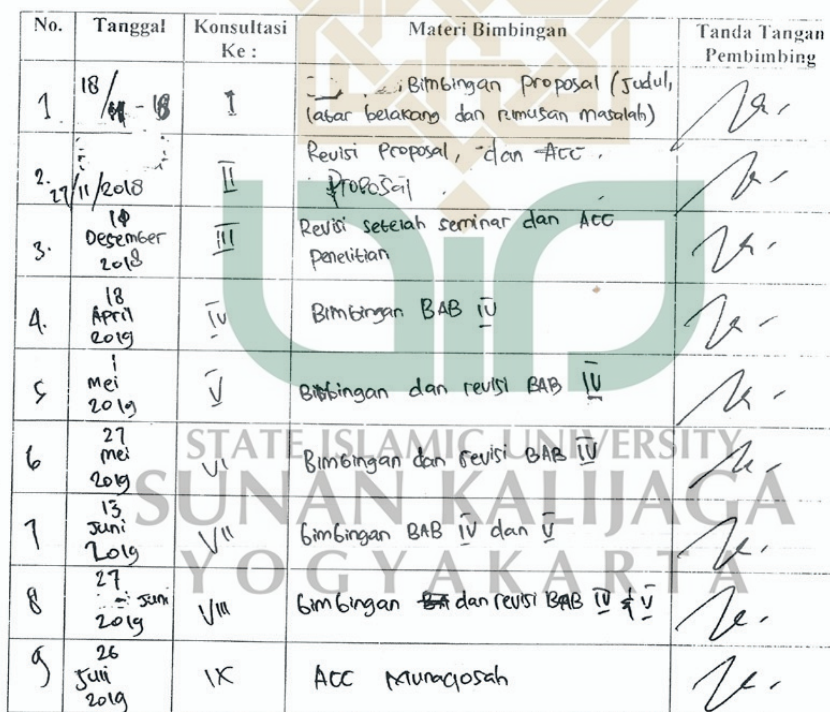 No. Tanggal Konsultasi Ke : Materi Bimbingan Tanda Tangan Pembimbing
1 18/11 - 18 I Bimbingan proposal (Judul,
latar belakang dan rumusan masalah)
2. 27/11/2018 II Revisi Proposal, dan Acc
Proposal
3. Desember 2018 III Revisi setelah seminar dan Acc
penelitian
4. 18 April 2019 IV Bimbingan BAB IV
5 1 Mei 2019 V Bimbingan dan revisi BAB IV
6 27 mei 2019 VI Bimbingan dan revisi BAB IV
7 13 Juni 2019 VII bimbingan BAB IV dan V
8 27 Juni 2019 VIII bimbingan dan revisi BAB IV & V
9 26 Juli 2019 IX Acc Munaqosah
STATE ISLAMIC UNIVERSITY
SUNAN KALIJAGA
YOGYAKARTA